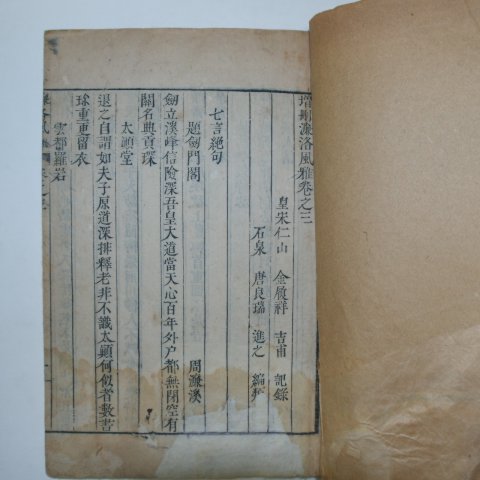 增刪濂洛風雅卷之三
皇宋仁山 金履祥 吉甫 記錄
石泉 唐良瑞 進之 編
七言絕句
題劒門閣 周濂溪
劒立溪峰信險深吾皇大道當天心百年外户都無閉空有
關名典貢琛
太顚堂
退之自謂如夫子原道深排釋老非不識太顚何似者數書
珎重更留衣
雲都羅岩